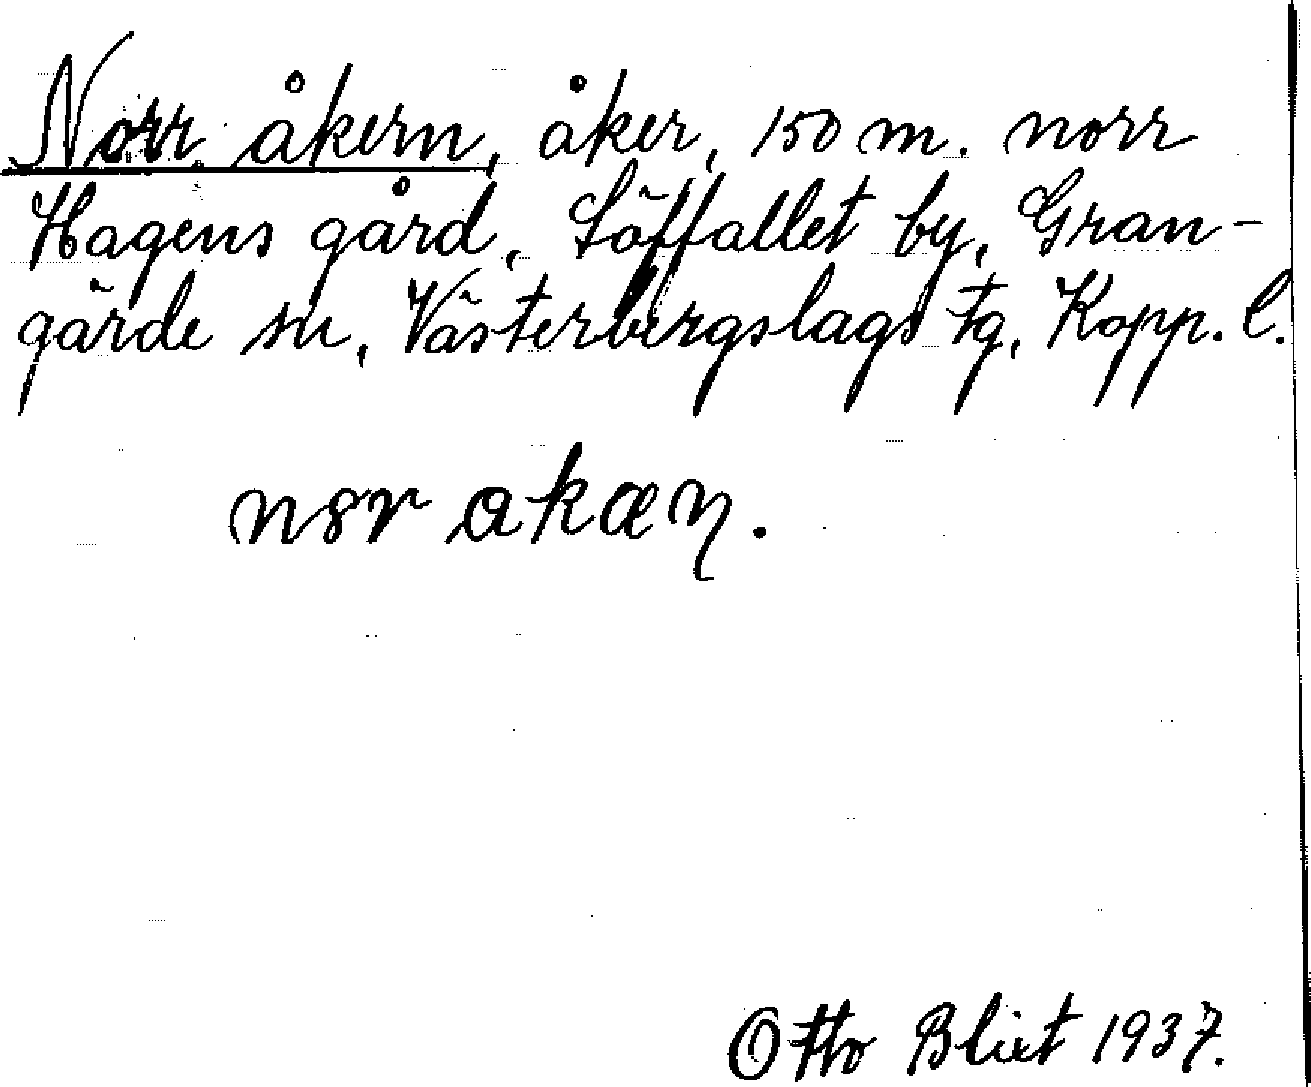 Norr åkern, åker, 150 m. norr
Hagens gård, Löffallet by, Gran-
gärde sn, Västerbergslags tg, Kopp. l.
nɞr akæɳ.
Otto Blixt 1937.